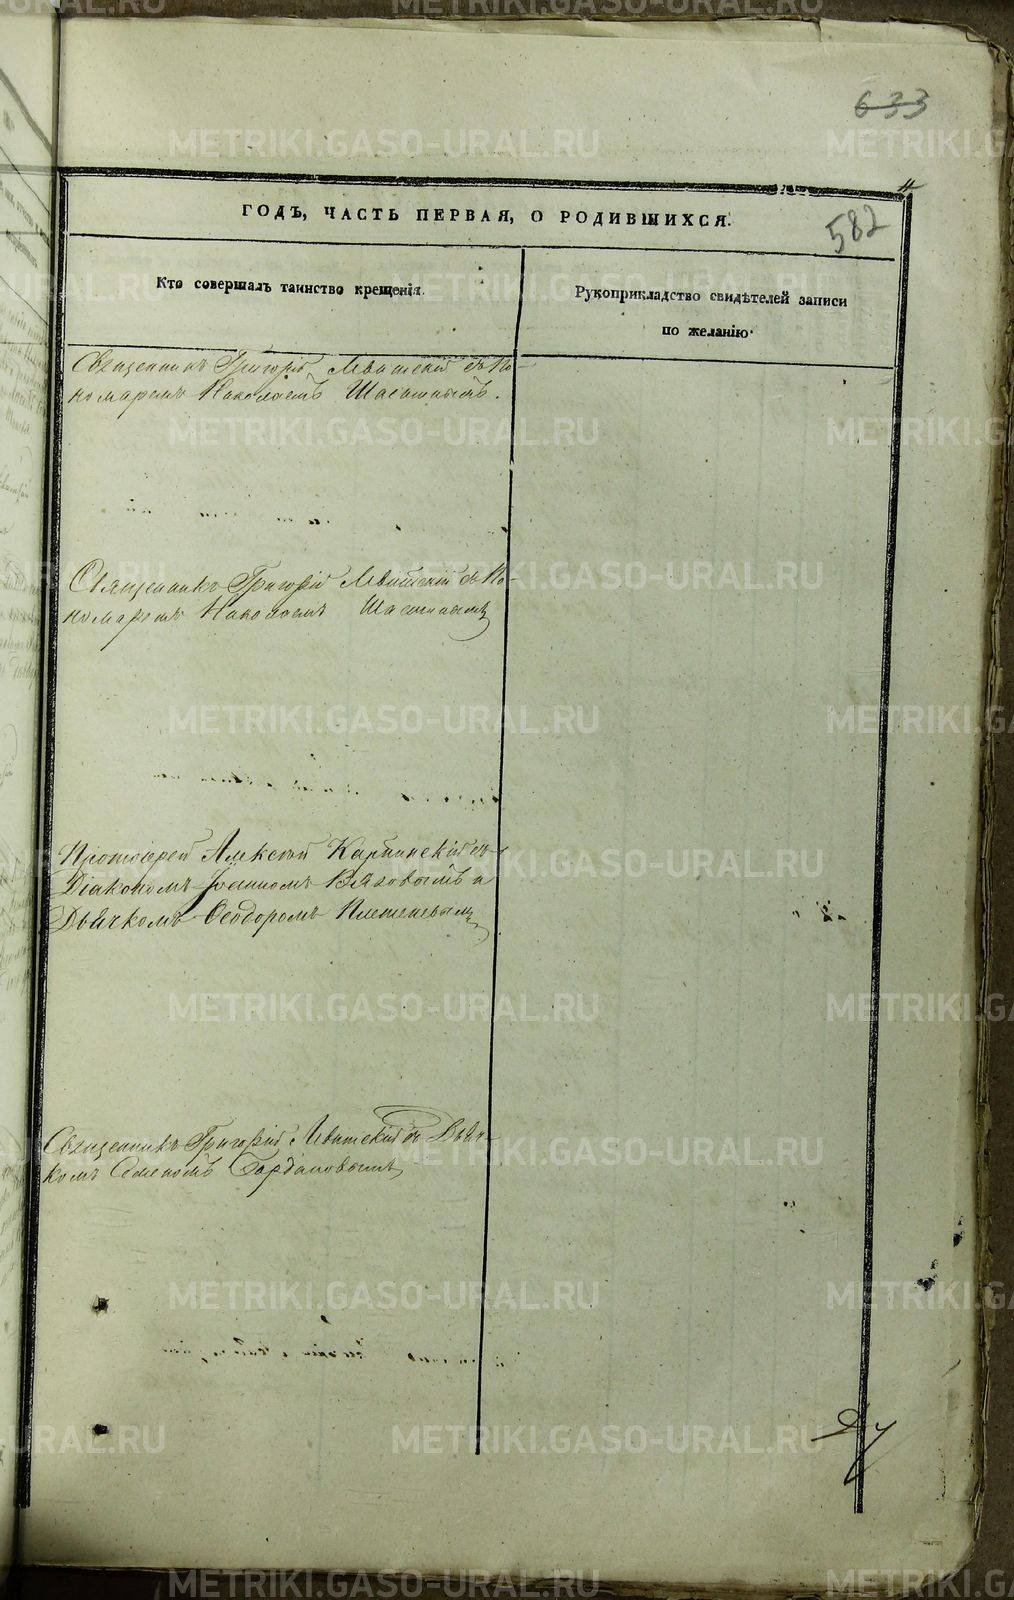 633
4
ГОДЪ, ЧАСТЬ ПЕРВАЯ, О РОДИВШИХСЯ.
582
Кто совершалъ таинство крещенія.
Рукоприкладство свидѣтелей записи
по желанію.
Священникъ Григорій Левитскій съ По-
номаремъ Николаемъ
Священникъ Григорій Левитскій съ По-
номаремъ Николаемъ
Протоіерей Алексѣй Карпинскій съ
Діакономъ Іоанномъ Вязовымъ и
Дьячкомъ Ѳеодоромъ Плетеневымъ
Священникъ Григорій Левитскій съ Дьяч-
комъ
METRIKI.GASO-URAL.RU